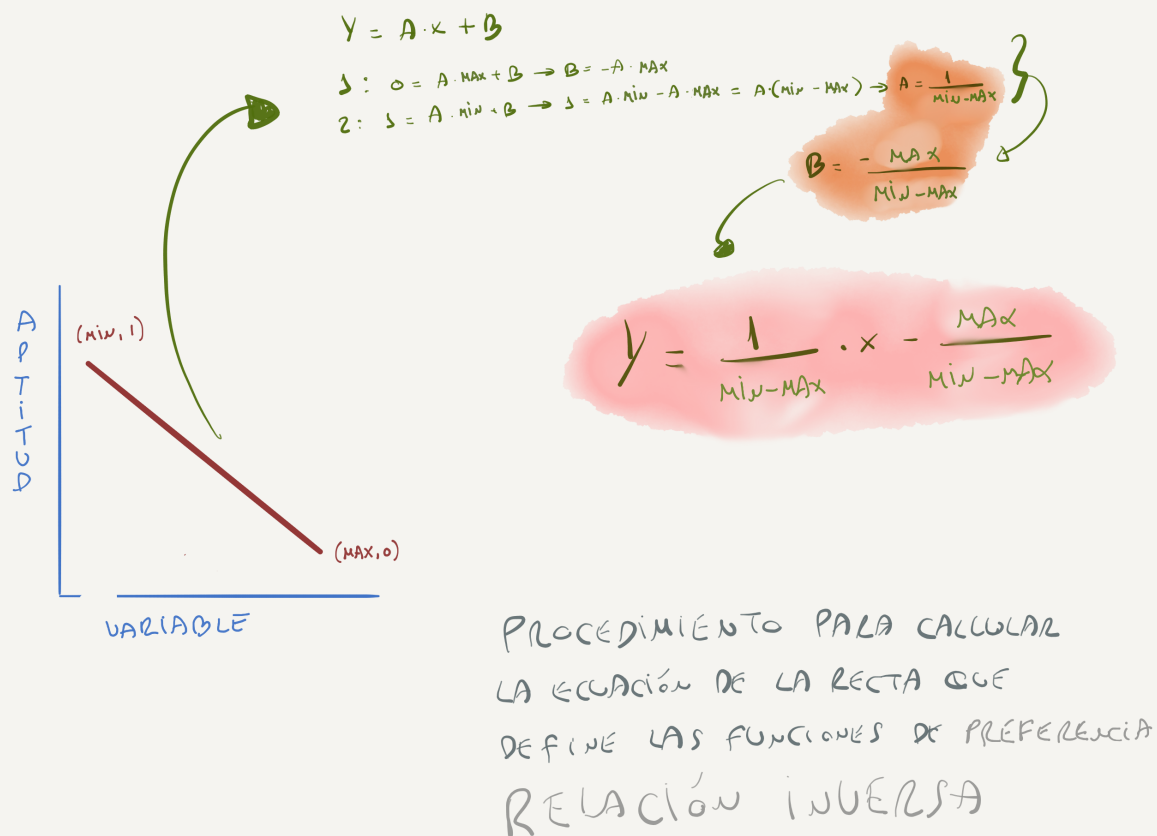 Y = A·x + B
1: 0 = A·MAX + B → B = -A·MAX
2: 1 = A·MiN + B → 1 = A·MiN - A·MAX = A·(MiN - MAX) → A = 1/(MiN-MAX)
B = - MAX/(MiN-MAX)
Y = 1/(MiN-MAX) · x - MAX/(MiN-MAX)
APTiTUD
(MiN, 1)
(MAX, 0)
VARIABLE
PROCEDiMiENTO PARA CALCULAR
LA ECUACióN DE LA RECTA QUE
DEFINE LAS FUNCIONES DE PREFERENCiA
RELACióN iNVERSA